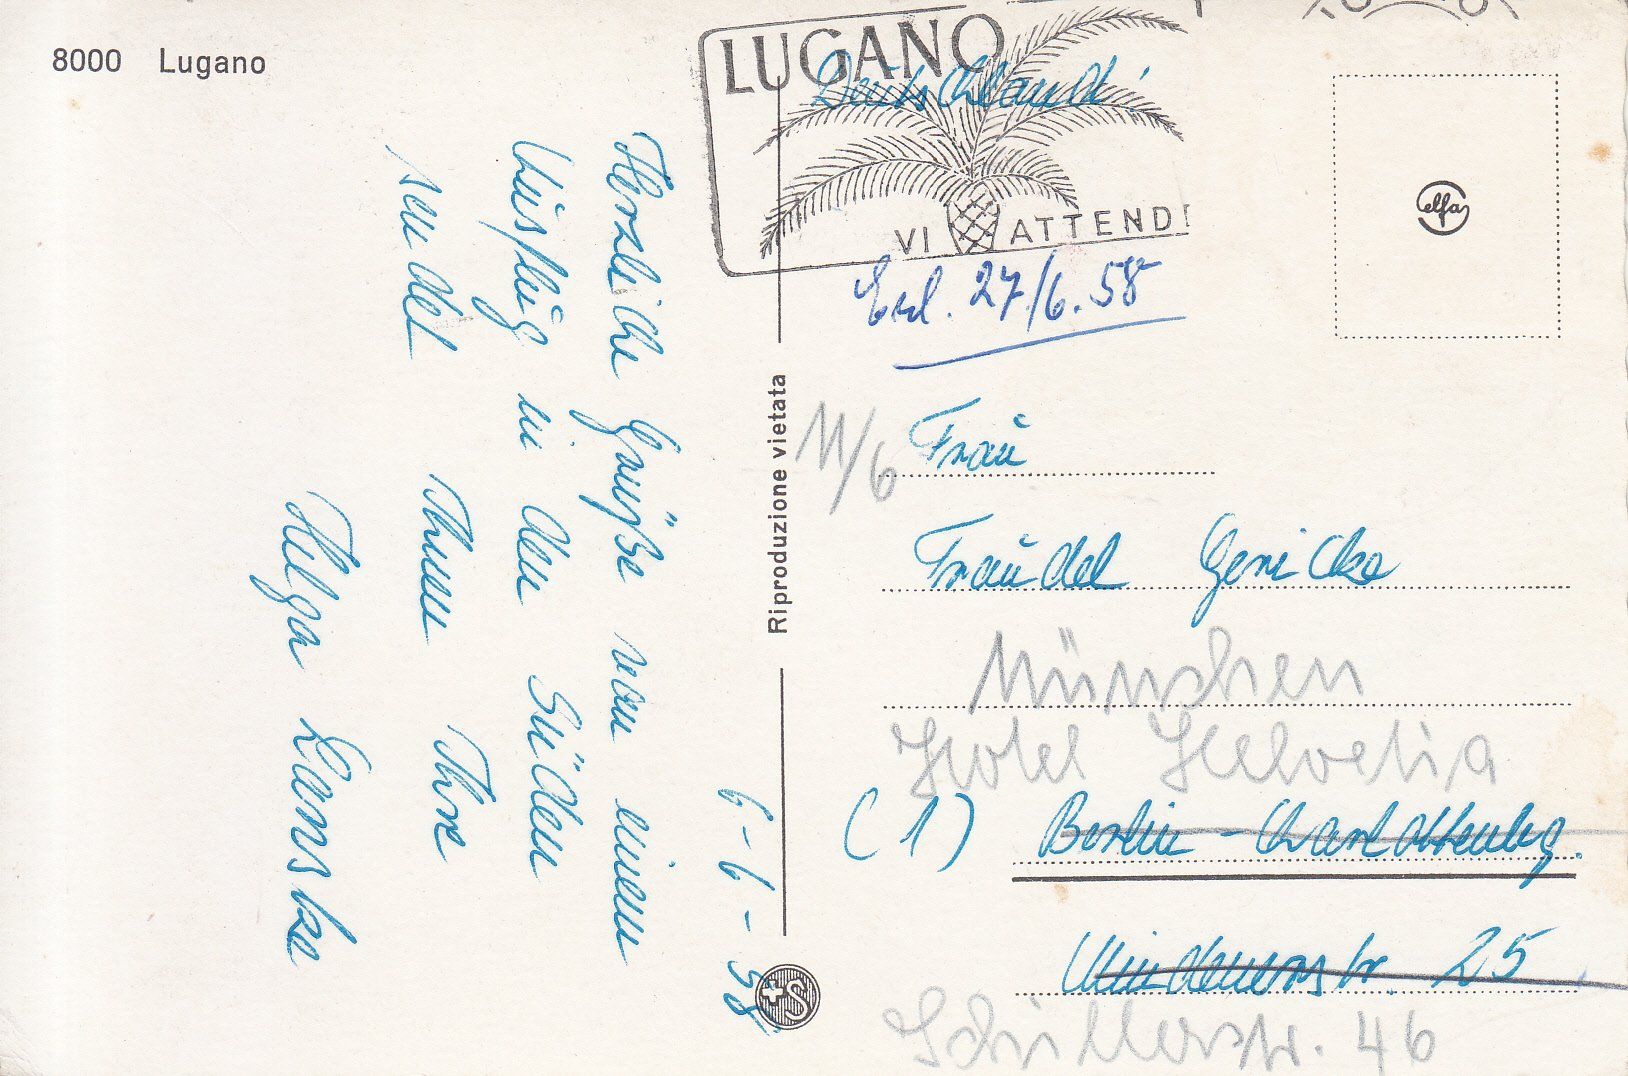 8000 Lugano
LUGANO
VI ATTENDE
Deutschland!
Erl. 27/6.58
6-6-58
Herzliche Grüße von einem
Ausflug in den Süden
sendet Ihnen Ihre
Helga
Riproduzione vietata
elfa
11/6
Frau
Fraudel Genicke
München
Hotel Helvetia
(1) Berlin-Charlottenbg.
Mindenerstr. 25
Schillerstr. 46
S